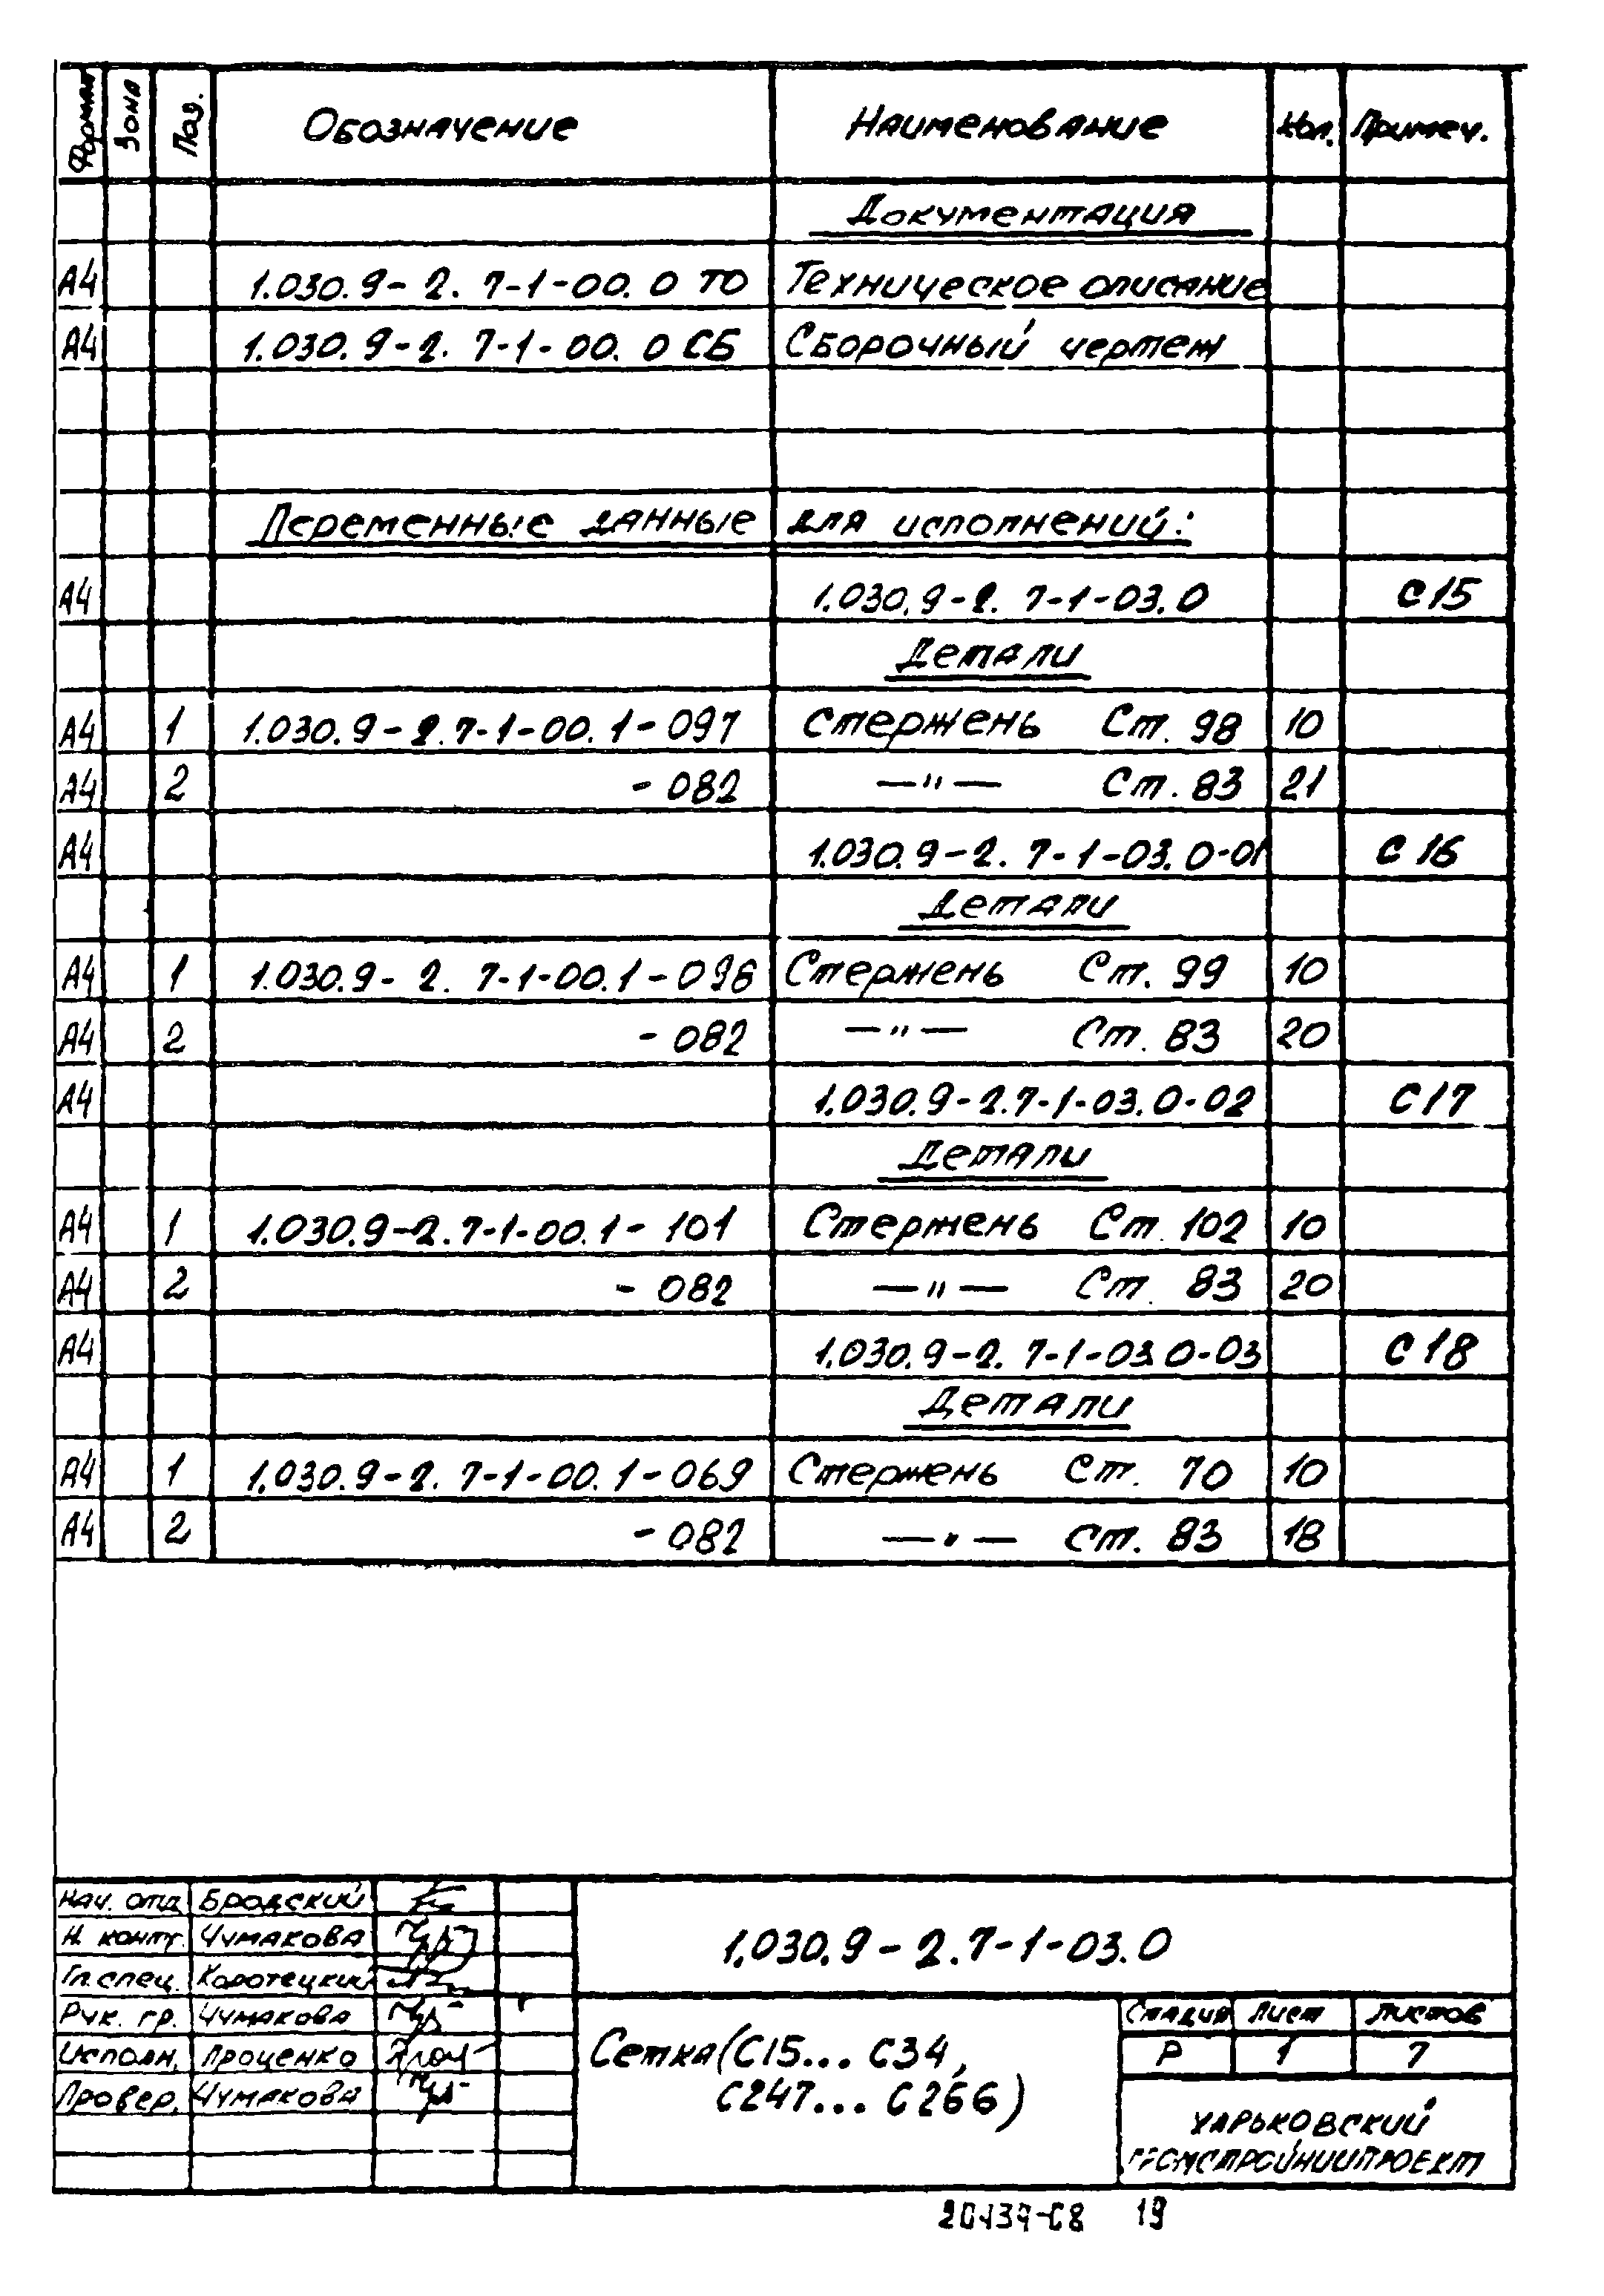 Формат Зона Поз. Обозначение Наименование Кол. Примеч.
Документация
А4 1.030.9-2. 7-1-00. 0 ТО Техническое описание
А4 1.030.9-2. 7-1-00. 0 СБ Сборочный чертеж
Переменные данные для исполнений:
А4 1.030.9-2. 7-1-03.0 С15
Детали
А4 1 1.030.9-2.7-1-00.1-097 Стержень Ст. 98 10
А4 2 -082 —"— Ст. 83 21
А4 1.030.9-2. 7-1-03.0-01 С16
Детали
А4 1 1.030.9-2. 7-1-00.1-098 Стержень Ст. 99 10
А4 2 -082 —"— Ст. 83 20
А4 1.030.9-2.7-1-03.0-02 С17
Детали
А4 1 1.030.9-2.7-1-00.1-101 Стержень Ст. 102 10
А4 2 -082 —"— Ст. 83 20
А4 1.030.9-2. 7-1-03.0-03 С18
Детали
А4 1 1.030.9-2. 7-1-00.1-069 Стержень Ст. 70 10
А4 2 -082 —"— Ст. 83 18
Нач. отд. Бродский
Н. контр. Чумакова
Гл. спец. Коротецкий
Рук. гр. Чумакова
Исполн. Проценко
Провер. Чумакова
1.030.9-2.7-1-03.0
Сетка (С15... С34,
С247... С266)
Стадия Лист Листов
Р 1 7
ХАРЬКОВСКИЙ
ПРОМСТРОЙНИИПРОЕКТ
20139-08 19